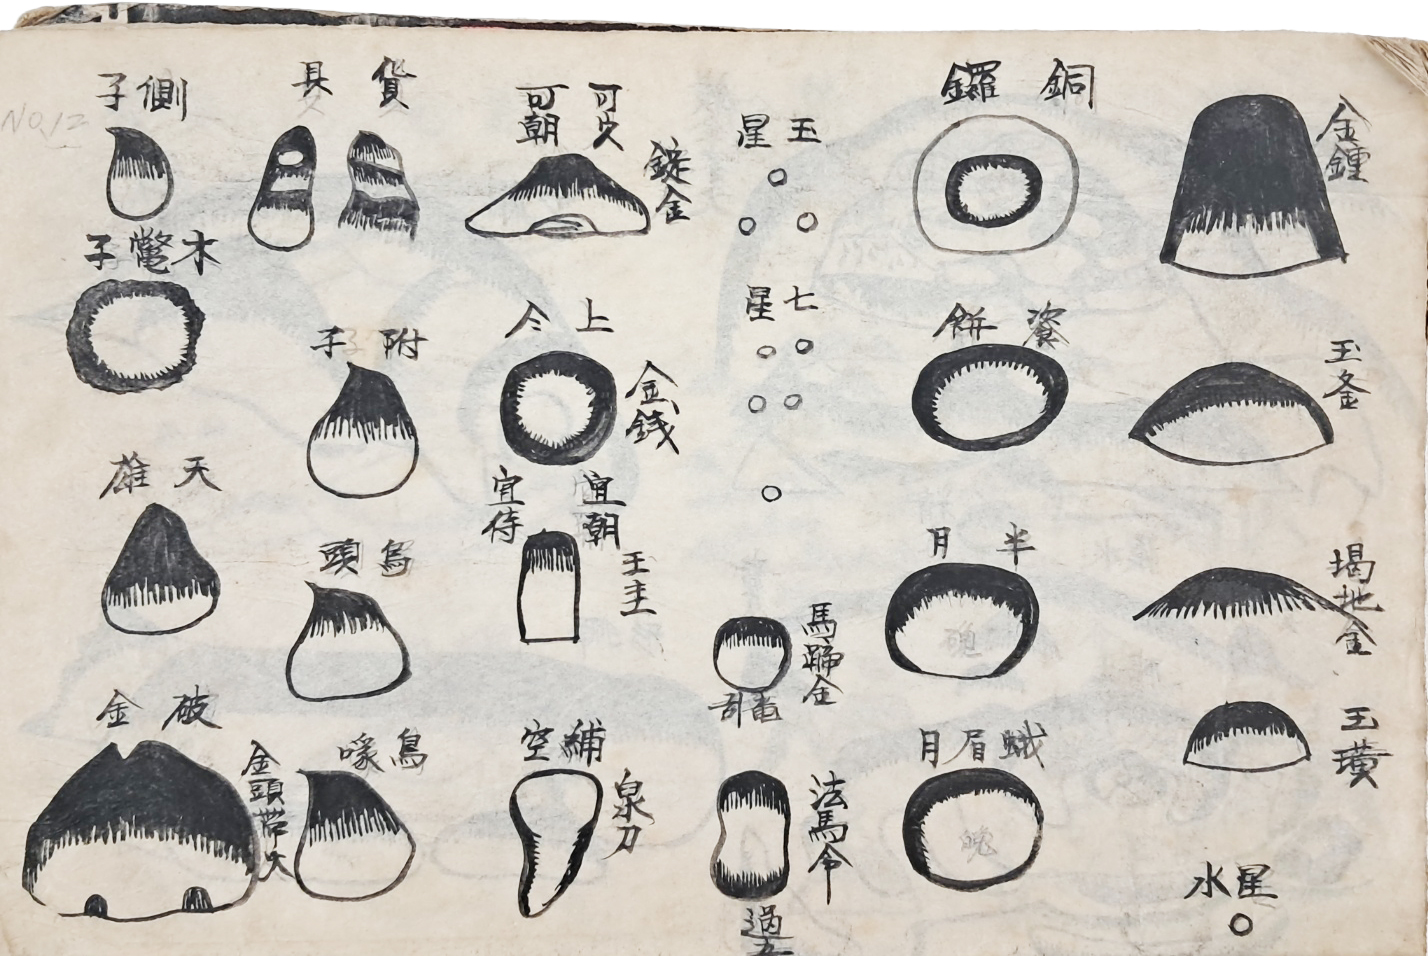 金鍾
玉釜
堨地金
玉璜
水星
銅鑼
餈餅
半月
蛾眉月
玉星
七星
馬蹄金
法馬令
過
可久
可朝
錠金
上
金錢
宜朝
宜侍
王圭
補空
泉刀
貨具
附子
烏頭
烏喙
側子
木鼈子
天雄
破金
金頭帶火